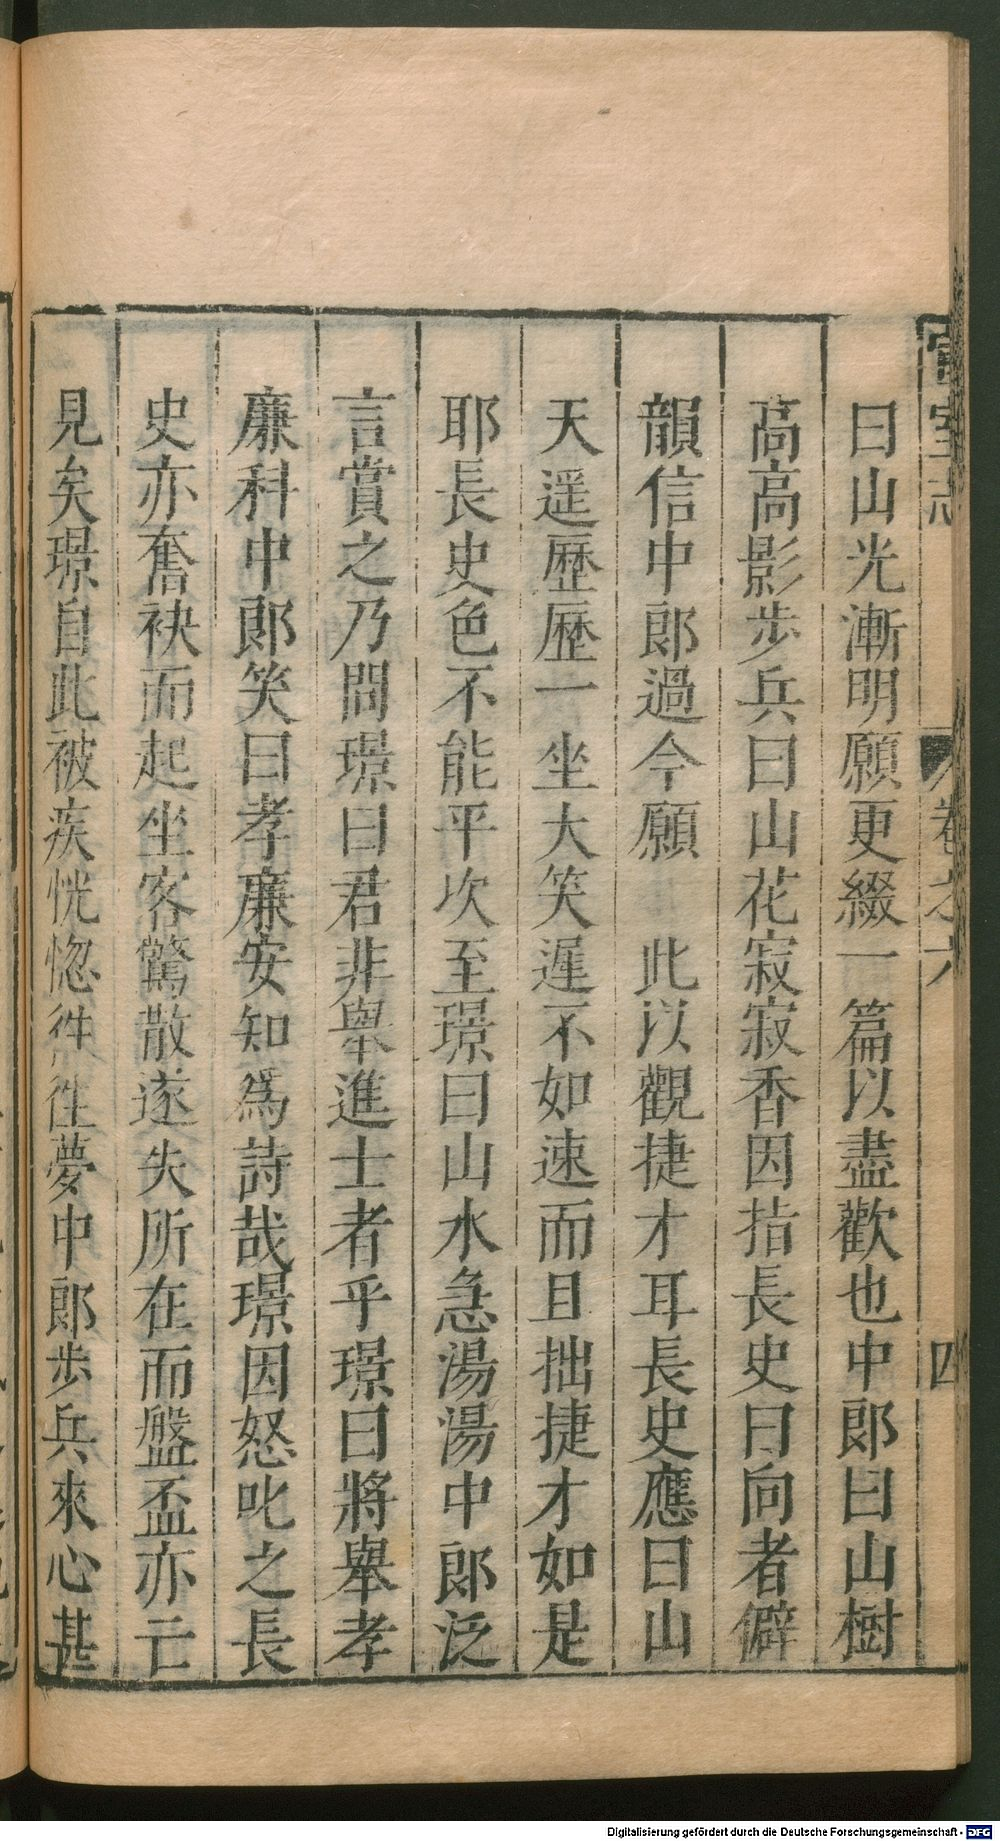 室志 卷之六 四
曰山光漸明願更綴一篇以盡歡也中郎曰山樹
高高影步兵曰山花寂寂香因指長史曰向者僻
韻信中郎過今願 此以觀捷才耳長史應曰山
天遥歷歷一坐大笑遲不如速而且拙捷才如是
耶長史色不能平次至璟曰山水急湯湯中郎泛
言賞之乃問璟曰君非舉進士者乎璟曰將舉孝
廉科中郎笑曰孝廉安知爲詩哉璟因怒叱之長
史亦奮袂而起坐客驚散遂失所在而盤盃亦亡
見矣璟自此被疾恍惚往往夢中郎步兵來心甚
Digitalisierung gefördert durch die Deutsche Forschungsgemeinschaft - DFG